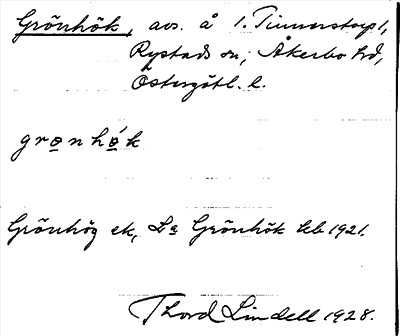 Grönhök, avs. å 1. Timmerstorp 1,
Rystads sn, Åkerbo hd,
Östergötl. l.
grønhǿk
Grönhög ek, La Grönhök lib 1921.
Thord Lindell 1928.